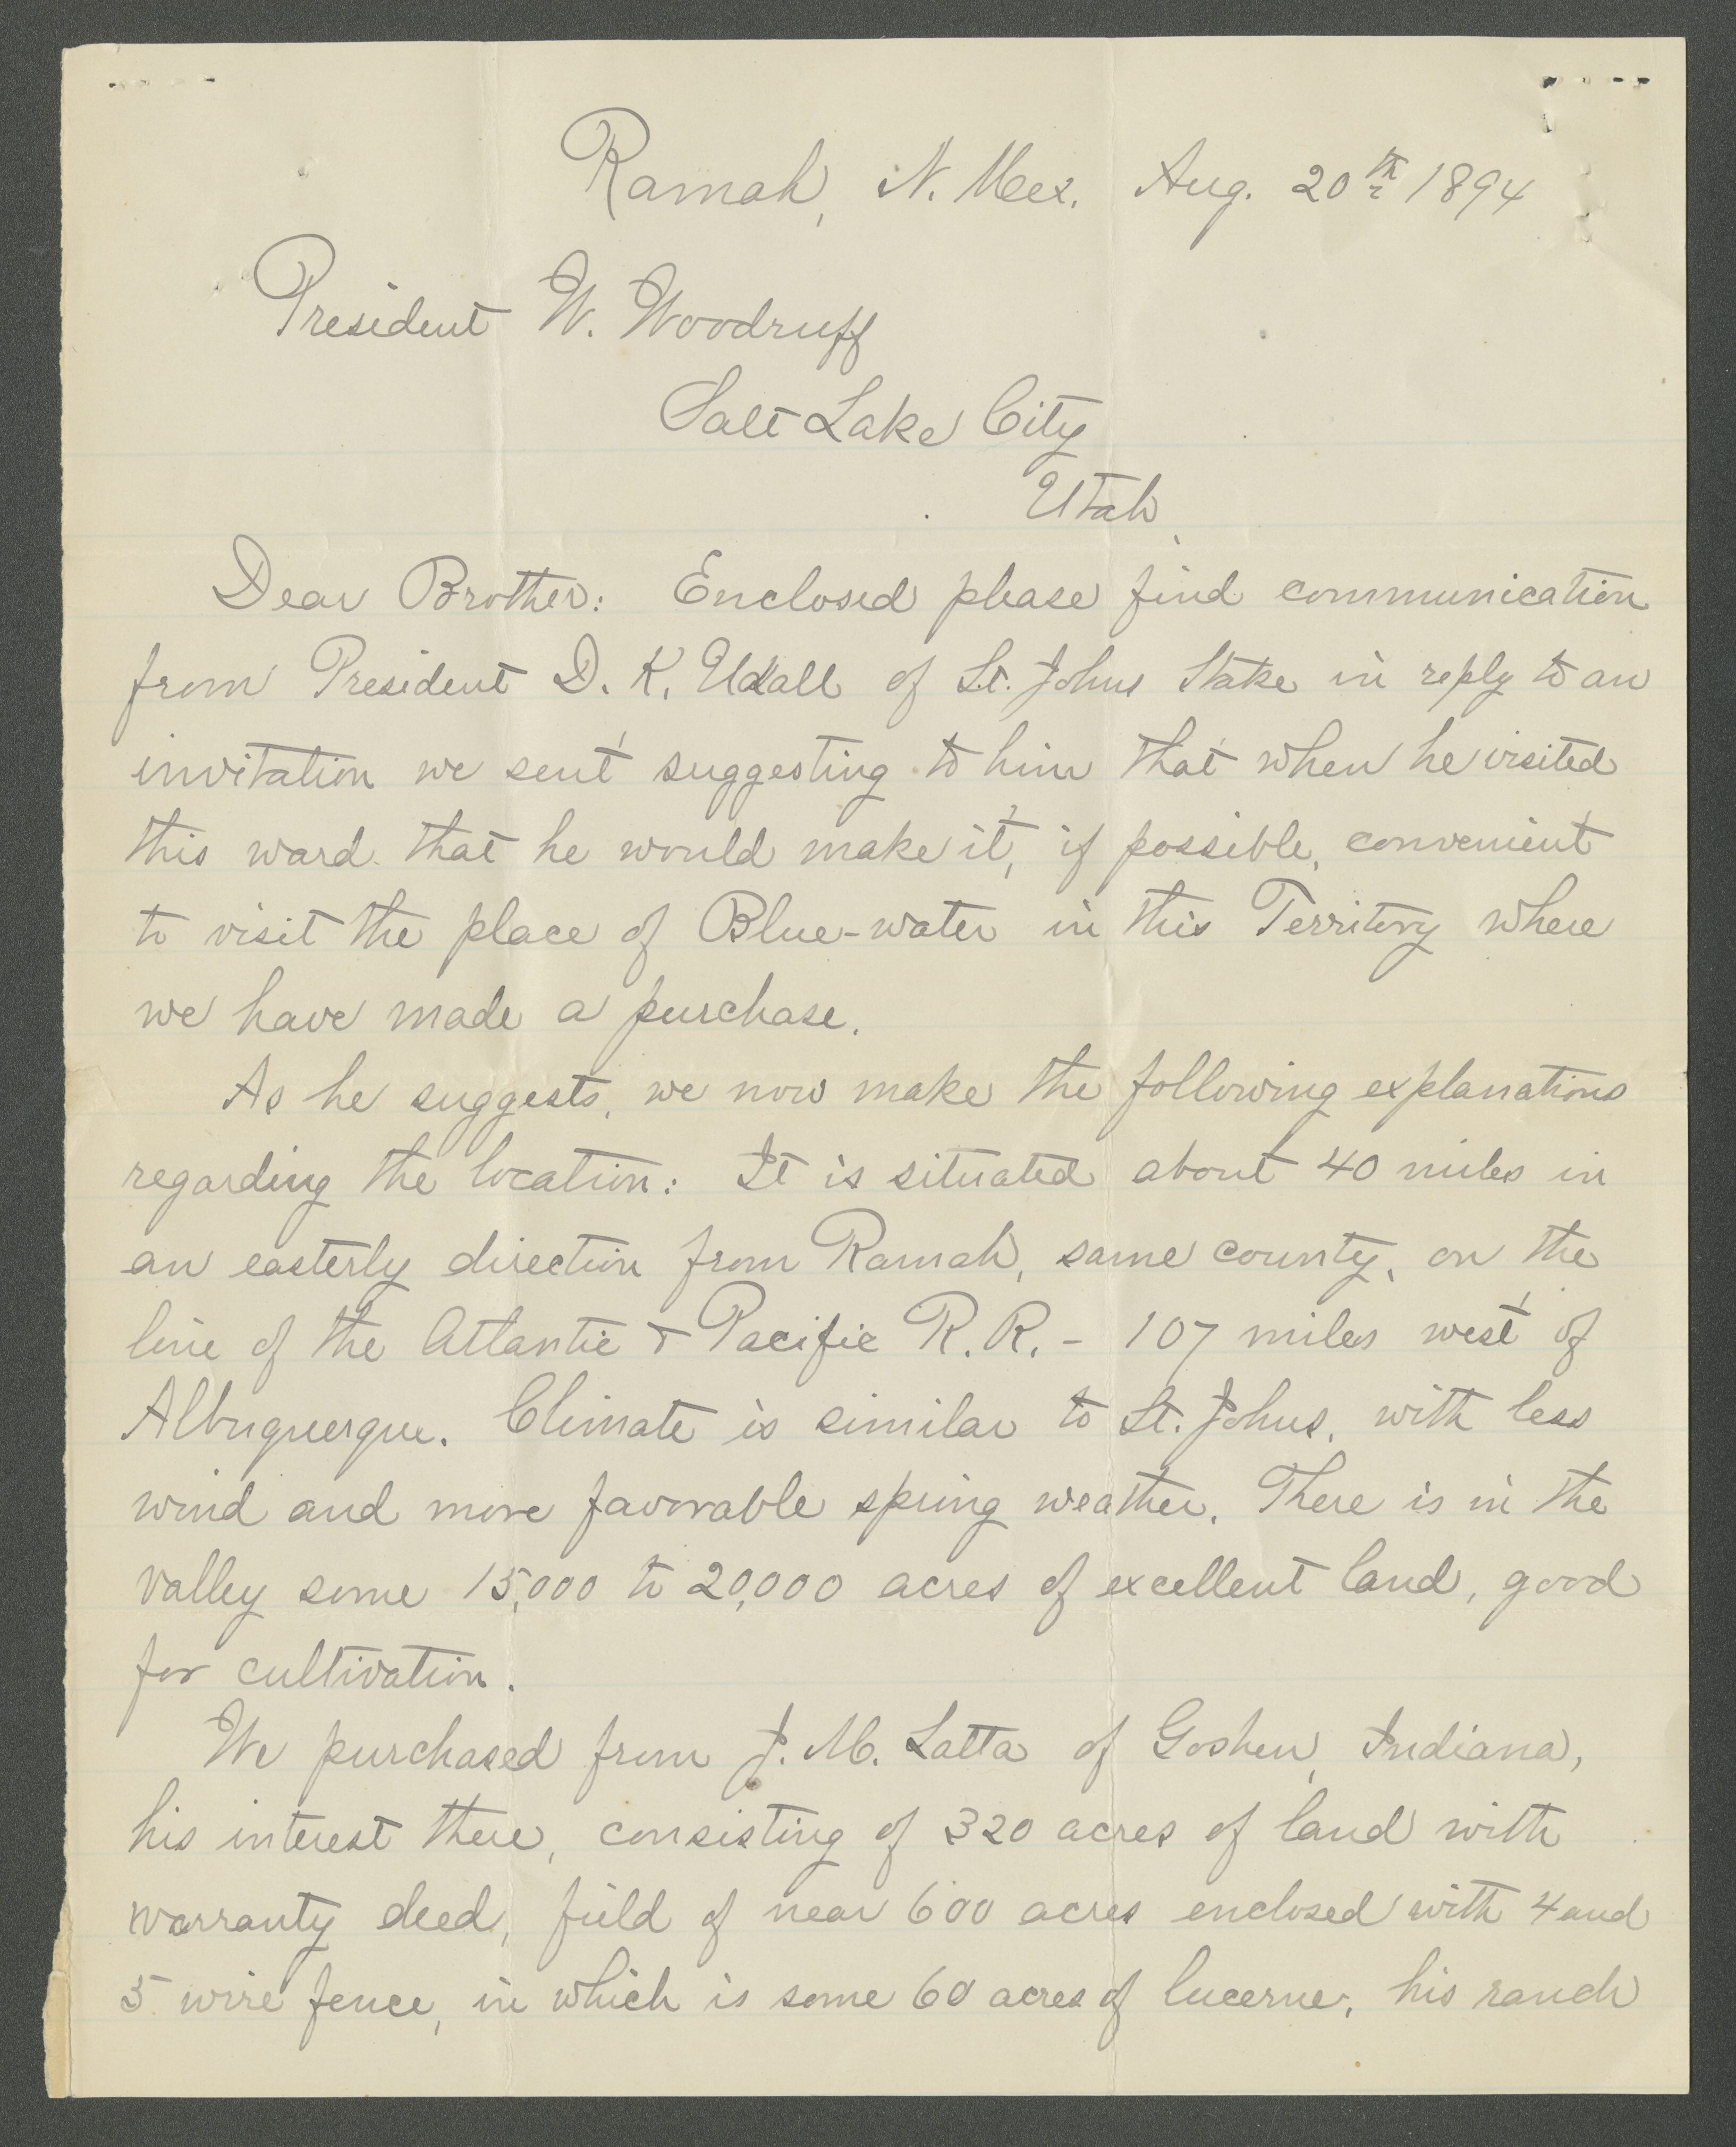 Ramah, N. Mex. Aug. 20th 1894
President W. Woodruff
Salt Lake City
Utah
Dear Brother: Enclosed please find communication
from President D. K. Udall of St. Johns Stake in reply to an
invitation we sent suggesting to him that when he visited
this ward that he would make it, if possible, convenient
to visit the place of Blue-water in this Territory where
we have made a purchase.
As he suggests, we now make the following explanations
regarding the location: It is situated about 40 miles in
an easterly direction from Ramah, same county, on the
line of the Atlantic & Pacific R. R. - 107 miles west of
Albuquerque. Climate is similar to St. Johns, with less
wind and more favorable spring weather. There is in the
valley some 15,000 to 20,000 acres of excellent land, good
for cultivation.
We purchased from J. M. Latta of Goshen, Indiana,
his interest there, consisting of 320 acres of land with
warranty deed, field of near 600 acres enclosed with 4 and
5 wire fence, in which is some 60 acres of lucerne, his ranch